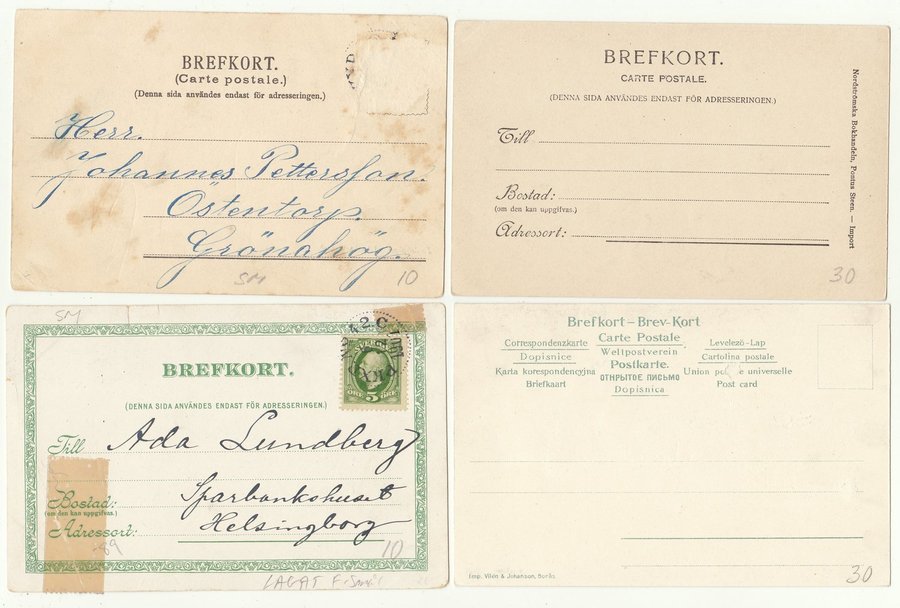 BREFKORT.
(Carte postale.)
(Denna sida användes endast för adresseringen.)
Herr.
Johannes Pettersson.
Östentorp.
Grönahög.
SM
10
BREFKORT.
CARTE POSTALE.
(DENNA SIDA ANVÄNDES ENDAST FÖR ADRESSERINGEN.)
Till
Bostad:
(om den kan uppgifvas.)
Adressort:
Nordströmska Bokhandeln, Postus Steen. — Import
30
SM
BREFKORT.
SVERIGE
5
ÖRE ÖRE
(DENNA SIDA ANVÄNDES ENDAST FÖR ADRESSERINGEN.)
Till Ada Lundberg
Bostad: Sparbankshuset
(om den kan uppgifvas.)
Adressort: Helsingborg
-89
10
LAGAT
Brefkort – Brev-Kort
Correspondenzkarte Carte Postale Levelező-Lap
Dopisnice Weltpostverein Cartolina postale
Karta korespondencyjna Postkarte. Union universelle
Briefkaart ОТКРЫТОЕ ПИСЬМО Post card
Dopisnica
Imp. Vilén & Johanson, Borås.
30